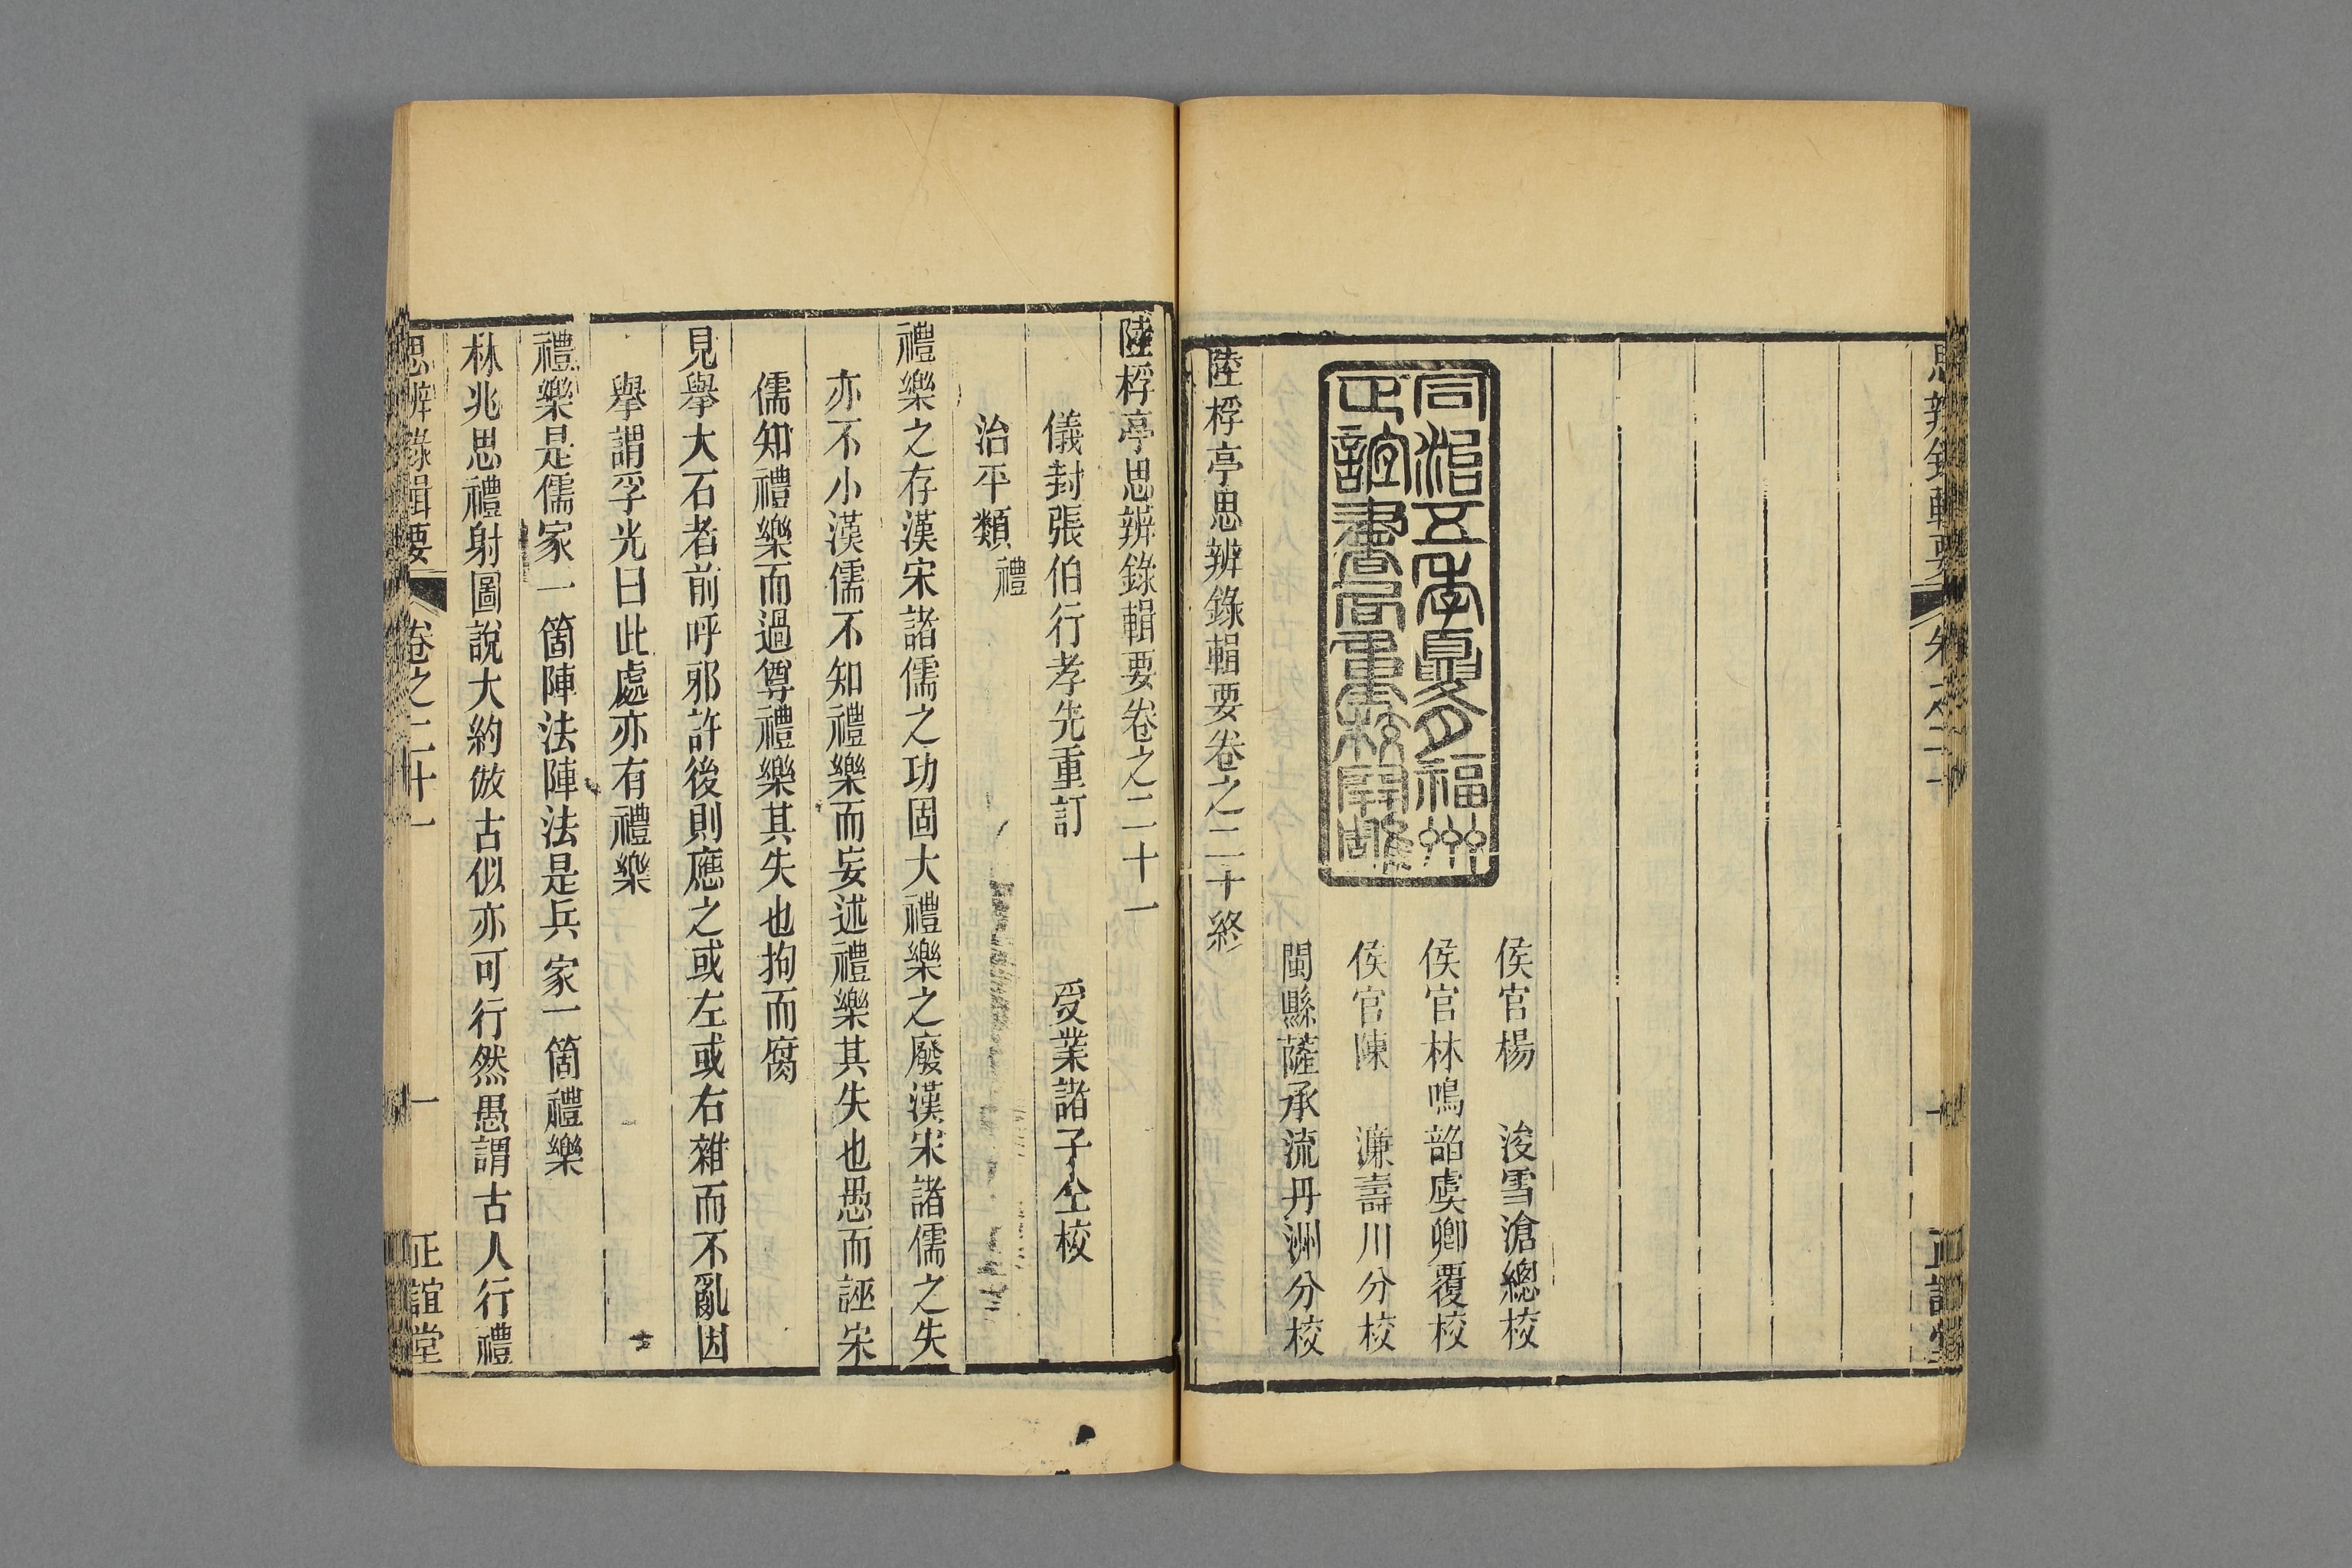 同治五年夏月福州
正誼書局重校開雕
侯官楊　浚雪滄總校
侯官林鳴韶虞卿覆校
侯官陳　濂壽川分校
閩縣薩承流丹洲分校
陸桴亭思辨錄輯要卷之二十終
陸桴亭思辨錄輯要卷之二十一
儀封張伯行孝先重訂　受業諸子仝校
治平類 禮
禮樂之存漢宋諸儒之功固大禮樂之廢漢宋諸儒之失
亦不小漢儒不知禮樂而妄述禮樂其失也愚而誣宋
儒知禮樂而過尊禮樂其失也拘而腐
見舉大石者前呼邪許後則應之或左或右雜而不亂因
舉謂孚光曰此處亦有禮樂
禮樂是儒家一箇陣法陣法是兵家一箇禮樂
林兆思禮射圖說大約倣古似亦可行然愚謂古人行禮
思辨錄輯要　卷之二十一　一　正誼堂